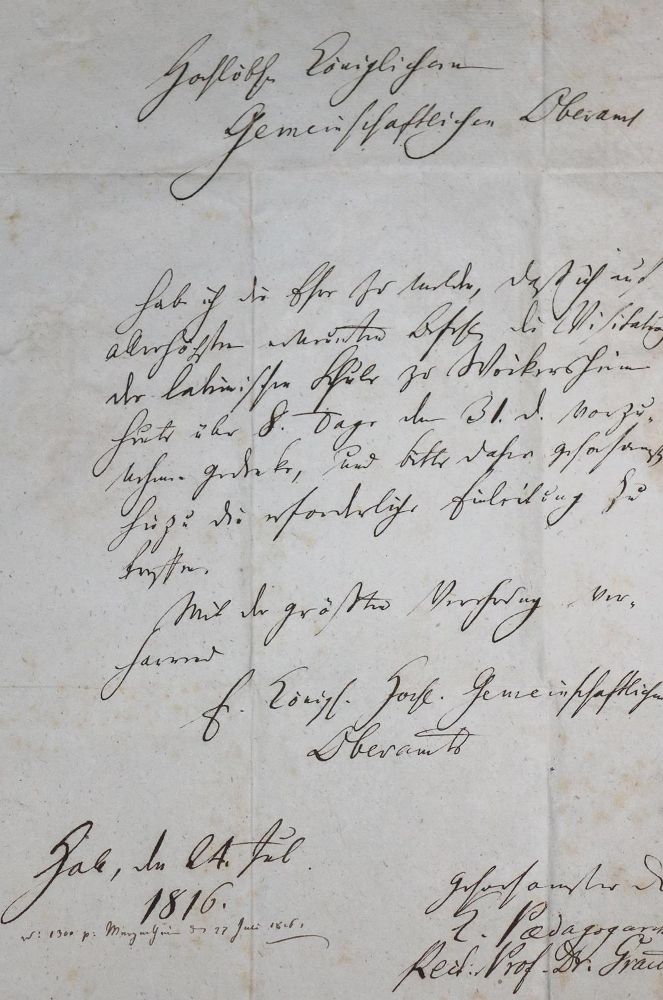 Hochlöbl. Königlichem
Gemeinschaftlichen Oberamt
habe ich die Ehre zu melden, daß ich auf
allerhöchsten Befehl die Visitation
der lateinischen Schule zu Weikersheim
heute über 8. Tage den 31. d. vorzu-
nehmen gedenke, und bitte daher gehorsamst
hiezu die erforderliche Einleitung zu
treffen.
Mit der größten Verehrung ver-
harrend
E. Königl. Hochl. Gemeinschaftlichen
Oberamts
den 24. Jul.
1816.
gehorsamster
Pædagogarch
Rect. Prof. Dr.